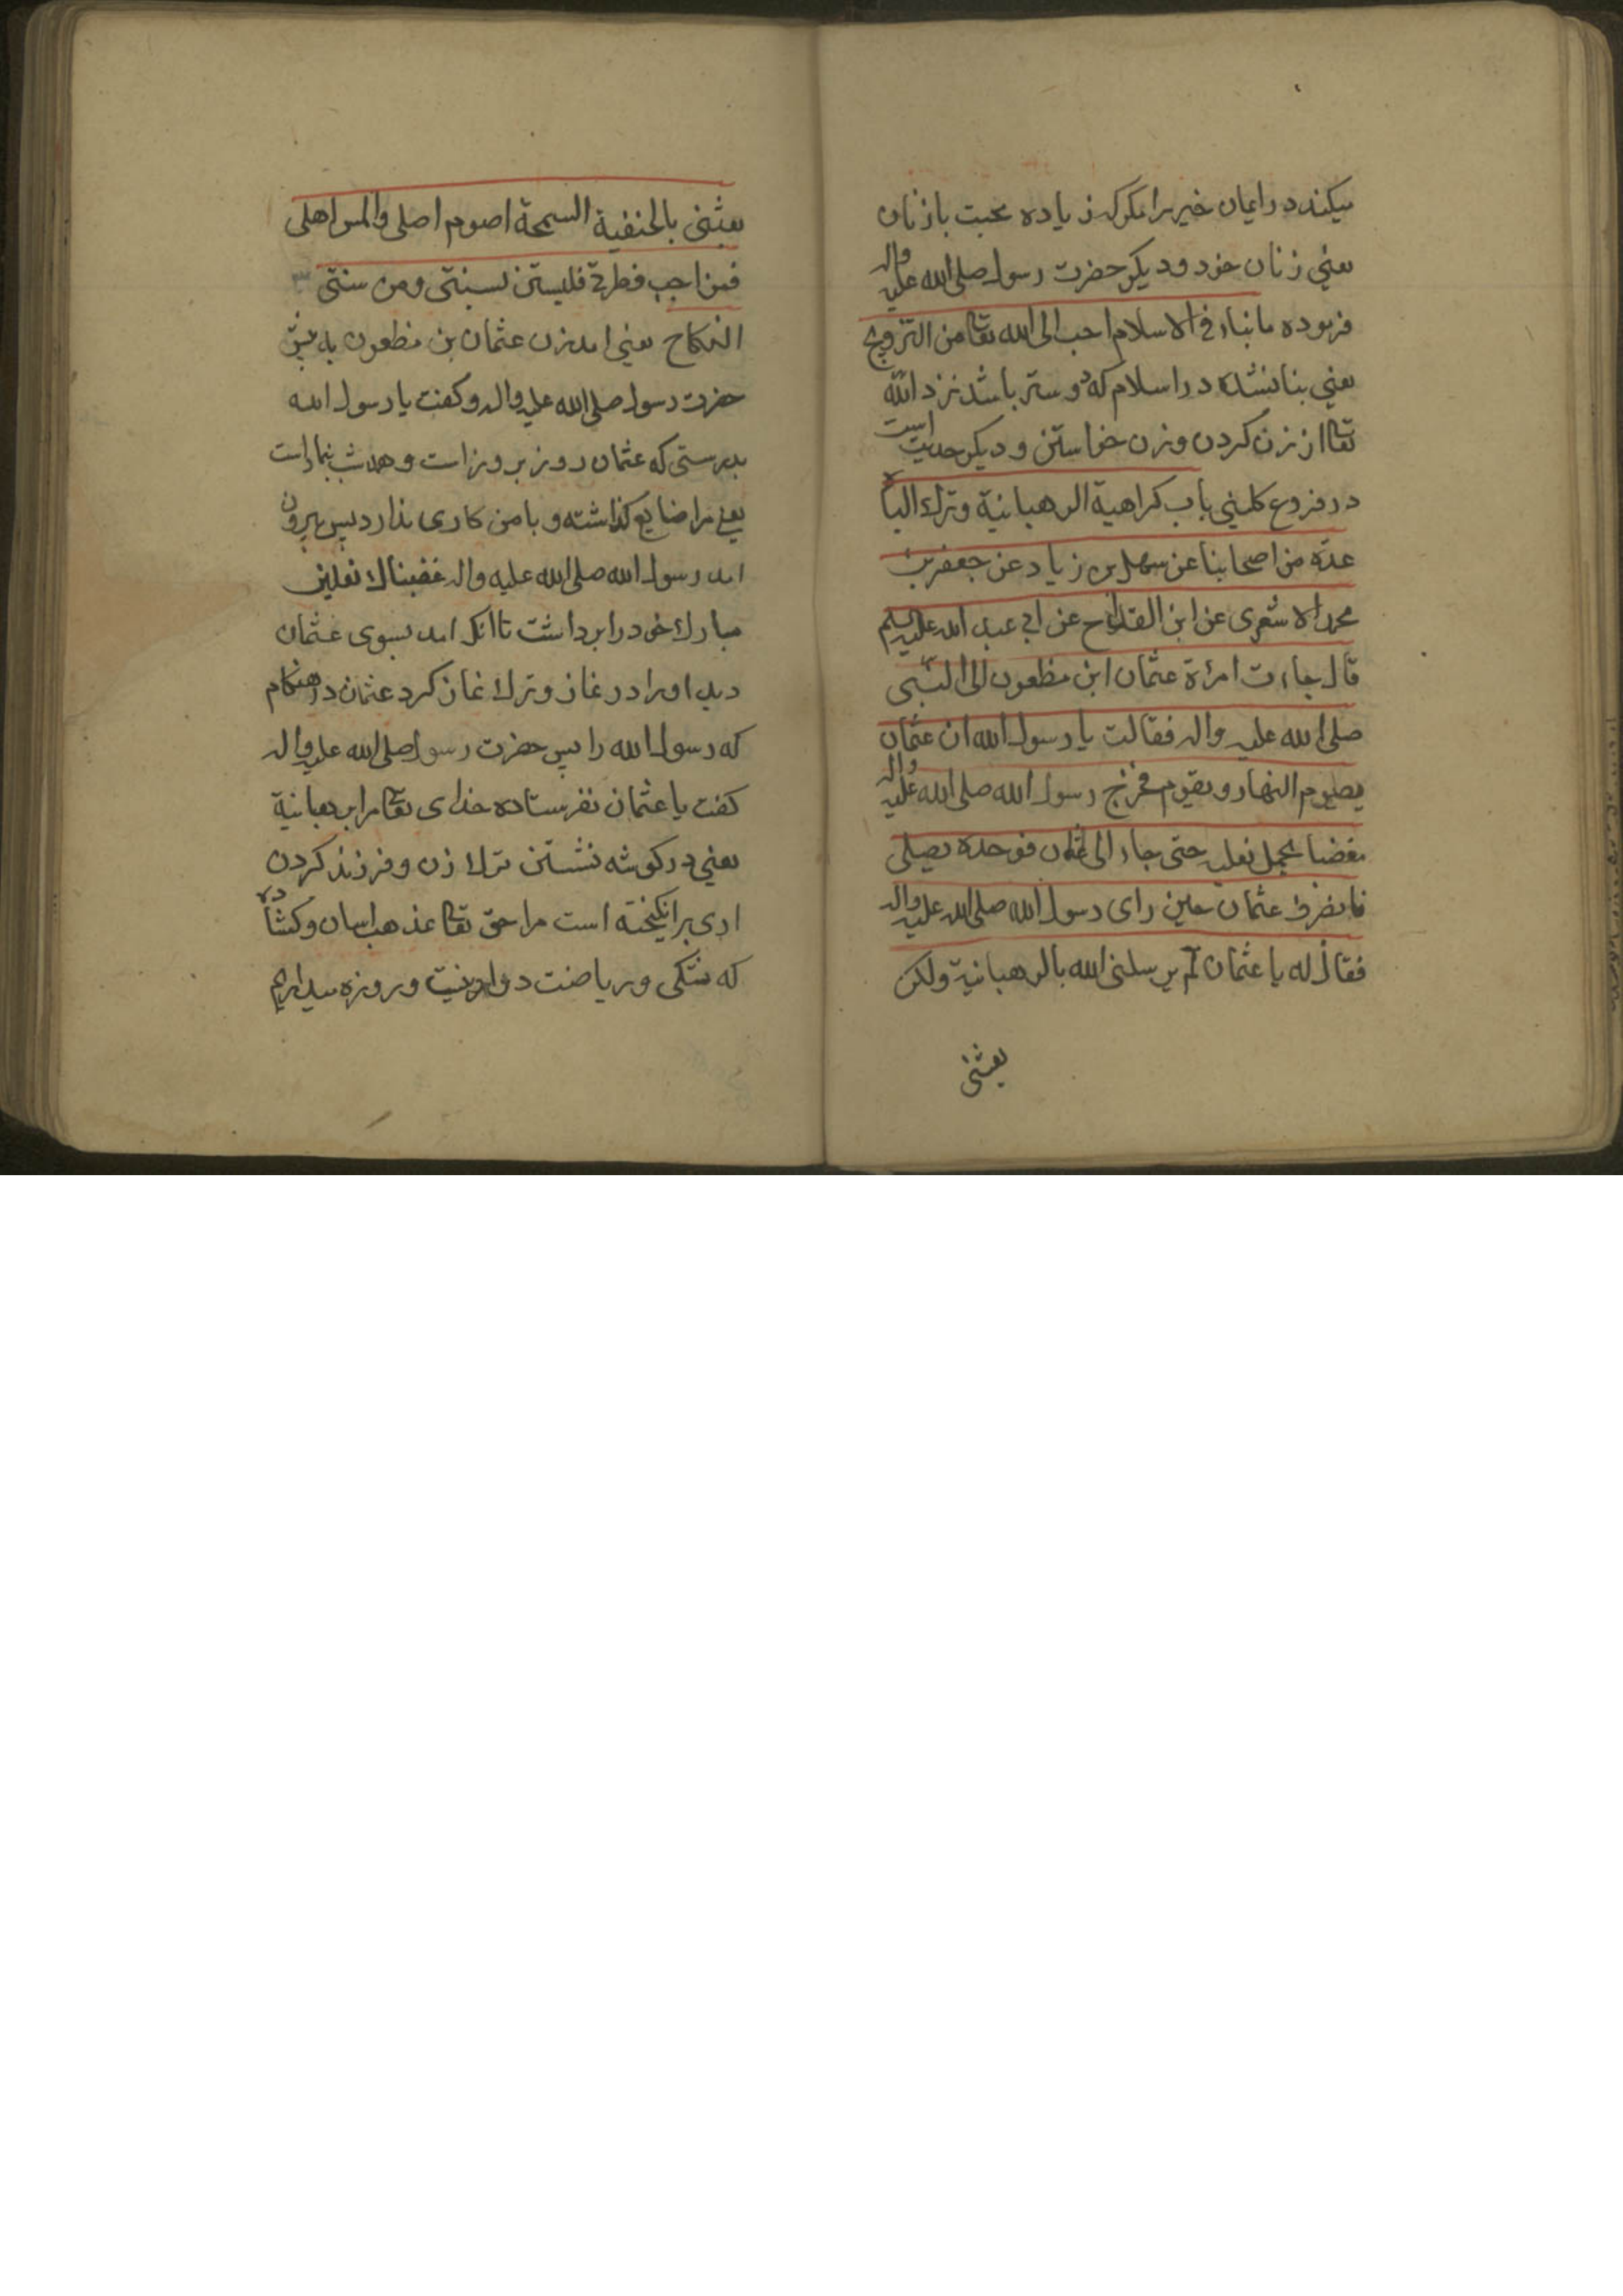 میکند در ایمان خیر را مکر که زیاده محبت با زنان
یعنی زنان خود و دیکر حضرت رسول صلی الله علیه واله
فرموده ما بناء فی الاسلام احب الی الله تعا من التزویج
یعنی بنا نشده در اسلام که دوستر باشد نزد الله
تعا از زن کردن و زن خواستن و دیکر حدیث است
در فروع کلینی باب کراهیة الرهبانیة وترك الباه
عدة من اصحابنا عن سهل بن زیاد عن جعفر بن
محمد الاشعری عن ابن القداح عن ابی عبد الله علیه السلم
قال جاءت امرئة عثمان ابن مظعون الی النبی
صلی الله علیه واله فقالت یا رسول الله ان عثمان
یصوم النهار ویقوم فخرج رسول الله صلی الله علیه واله
مغضبا یحمل نعلیه حتی جاء الی عثمان فوجده یصلی
فانصرف عثمان حین رای رسول الله صلی الله علیه واله
فقال له یا عثمان لم یرسلنی الله بالرهبانیة ولکن
بعثنی
بعثنی بالحنفیة السمحة اصوم اصلی والمس اهلی
فمن احب فطرتی فلیستن بسنتی ومن سنتی
النکاح یعنی امد زن عثمان بن مظعون به پیش
حضرت رسول صلی الله علیه واله وکفت یا رسول الله
بدرستی که عثمان روز بروز است و همه شب بنماز است
یعنی مرا ضایع کذاشته و با من کاری ندارد پس بیرون
امد رسول الله صلی الله علیه واله غضبناك نعلین
مبارك خود را برداشت تا انکه امد بسوی عثمان
دید او را در نماز وترك نماز کرد عثمان در هنکام
که رسول الله را پس حضرت رسول صلی الله علیه واله
کفت یا عثمان نفرستاده خدای تعا مرا برهبانیة
یعنی در کوشه نشستن ترك زن و فرزند کردن
اری برانکیخته است مرا حق تعا بمذهب اسان و کشاده
که تنکی و ریاضت در او نیست و روزه میدارم